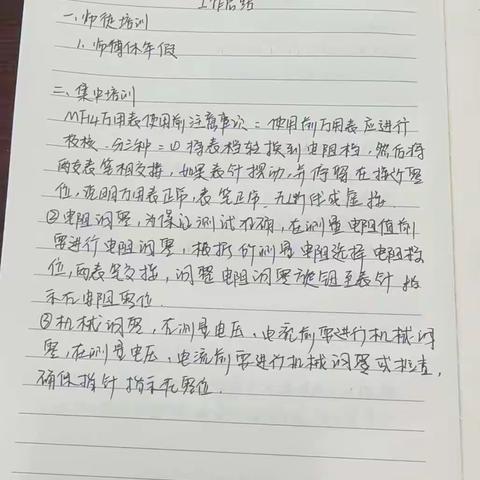 工作总结
一、师徒培训
1. 师傅休年假
二、集中培训
MF14万用表使用前注意事项：使用前万用表应进行
校核，分三种：①将表档转换到电阻档，然后将
两支表笔相交接，如果表针摆动，并停留在接近零
位，说明万用表正常，表笔正常，无断线或虚接。
②电阻调零，为保证测试准确，在测量电阻值前
要进行电阻调零，根据所测量电阻选择电阻档
位，两表笔交接，调整电阻调零旋钮至表针指
示在电阻零位。
③机械调零，在测量电压、电流前要进行机械调
零，在测量电压、电流前要进行机械调零或检查，
确保指针指示在零位。